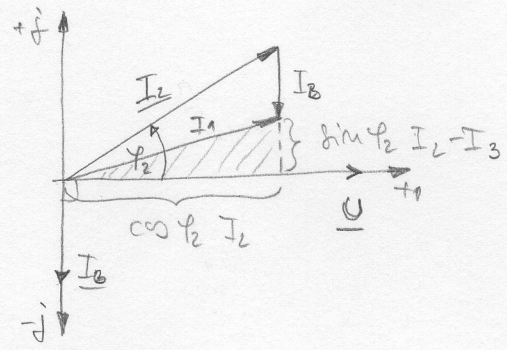 +j
I2
IB
I1
φ2
sin φ2 I2 - I3
+1
U
cos φ2 I2
IB
-j